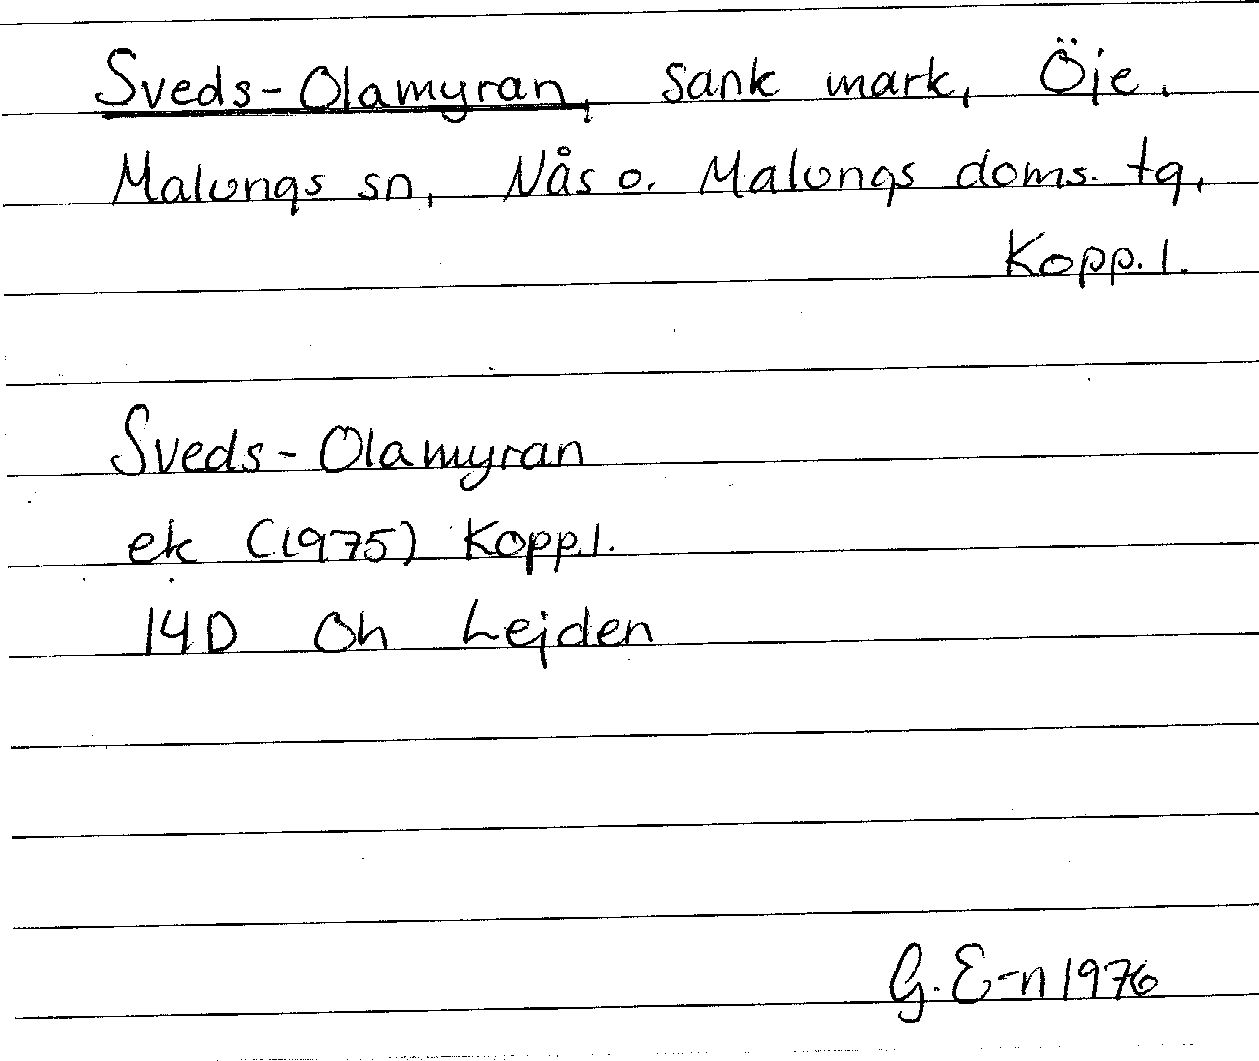 Sveds-Olamyran, sank mark, Öje.
Malungs sn, Nås o. Malungs doms. tg,
Kopp. l.
Sveds-Olamyran
ek (1975) Kopp.l.
14D Oh Lejden
G. E-n 1976